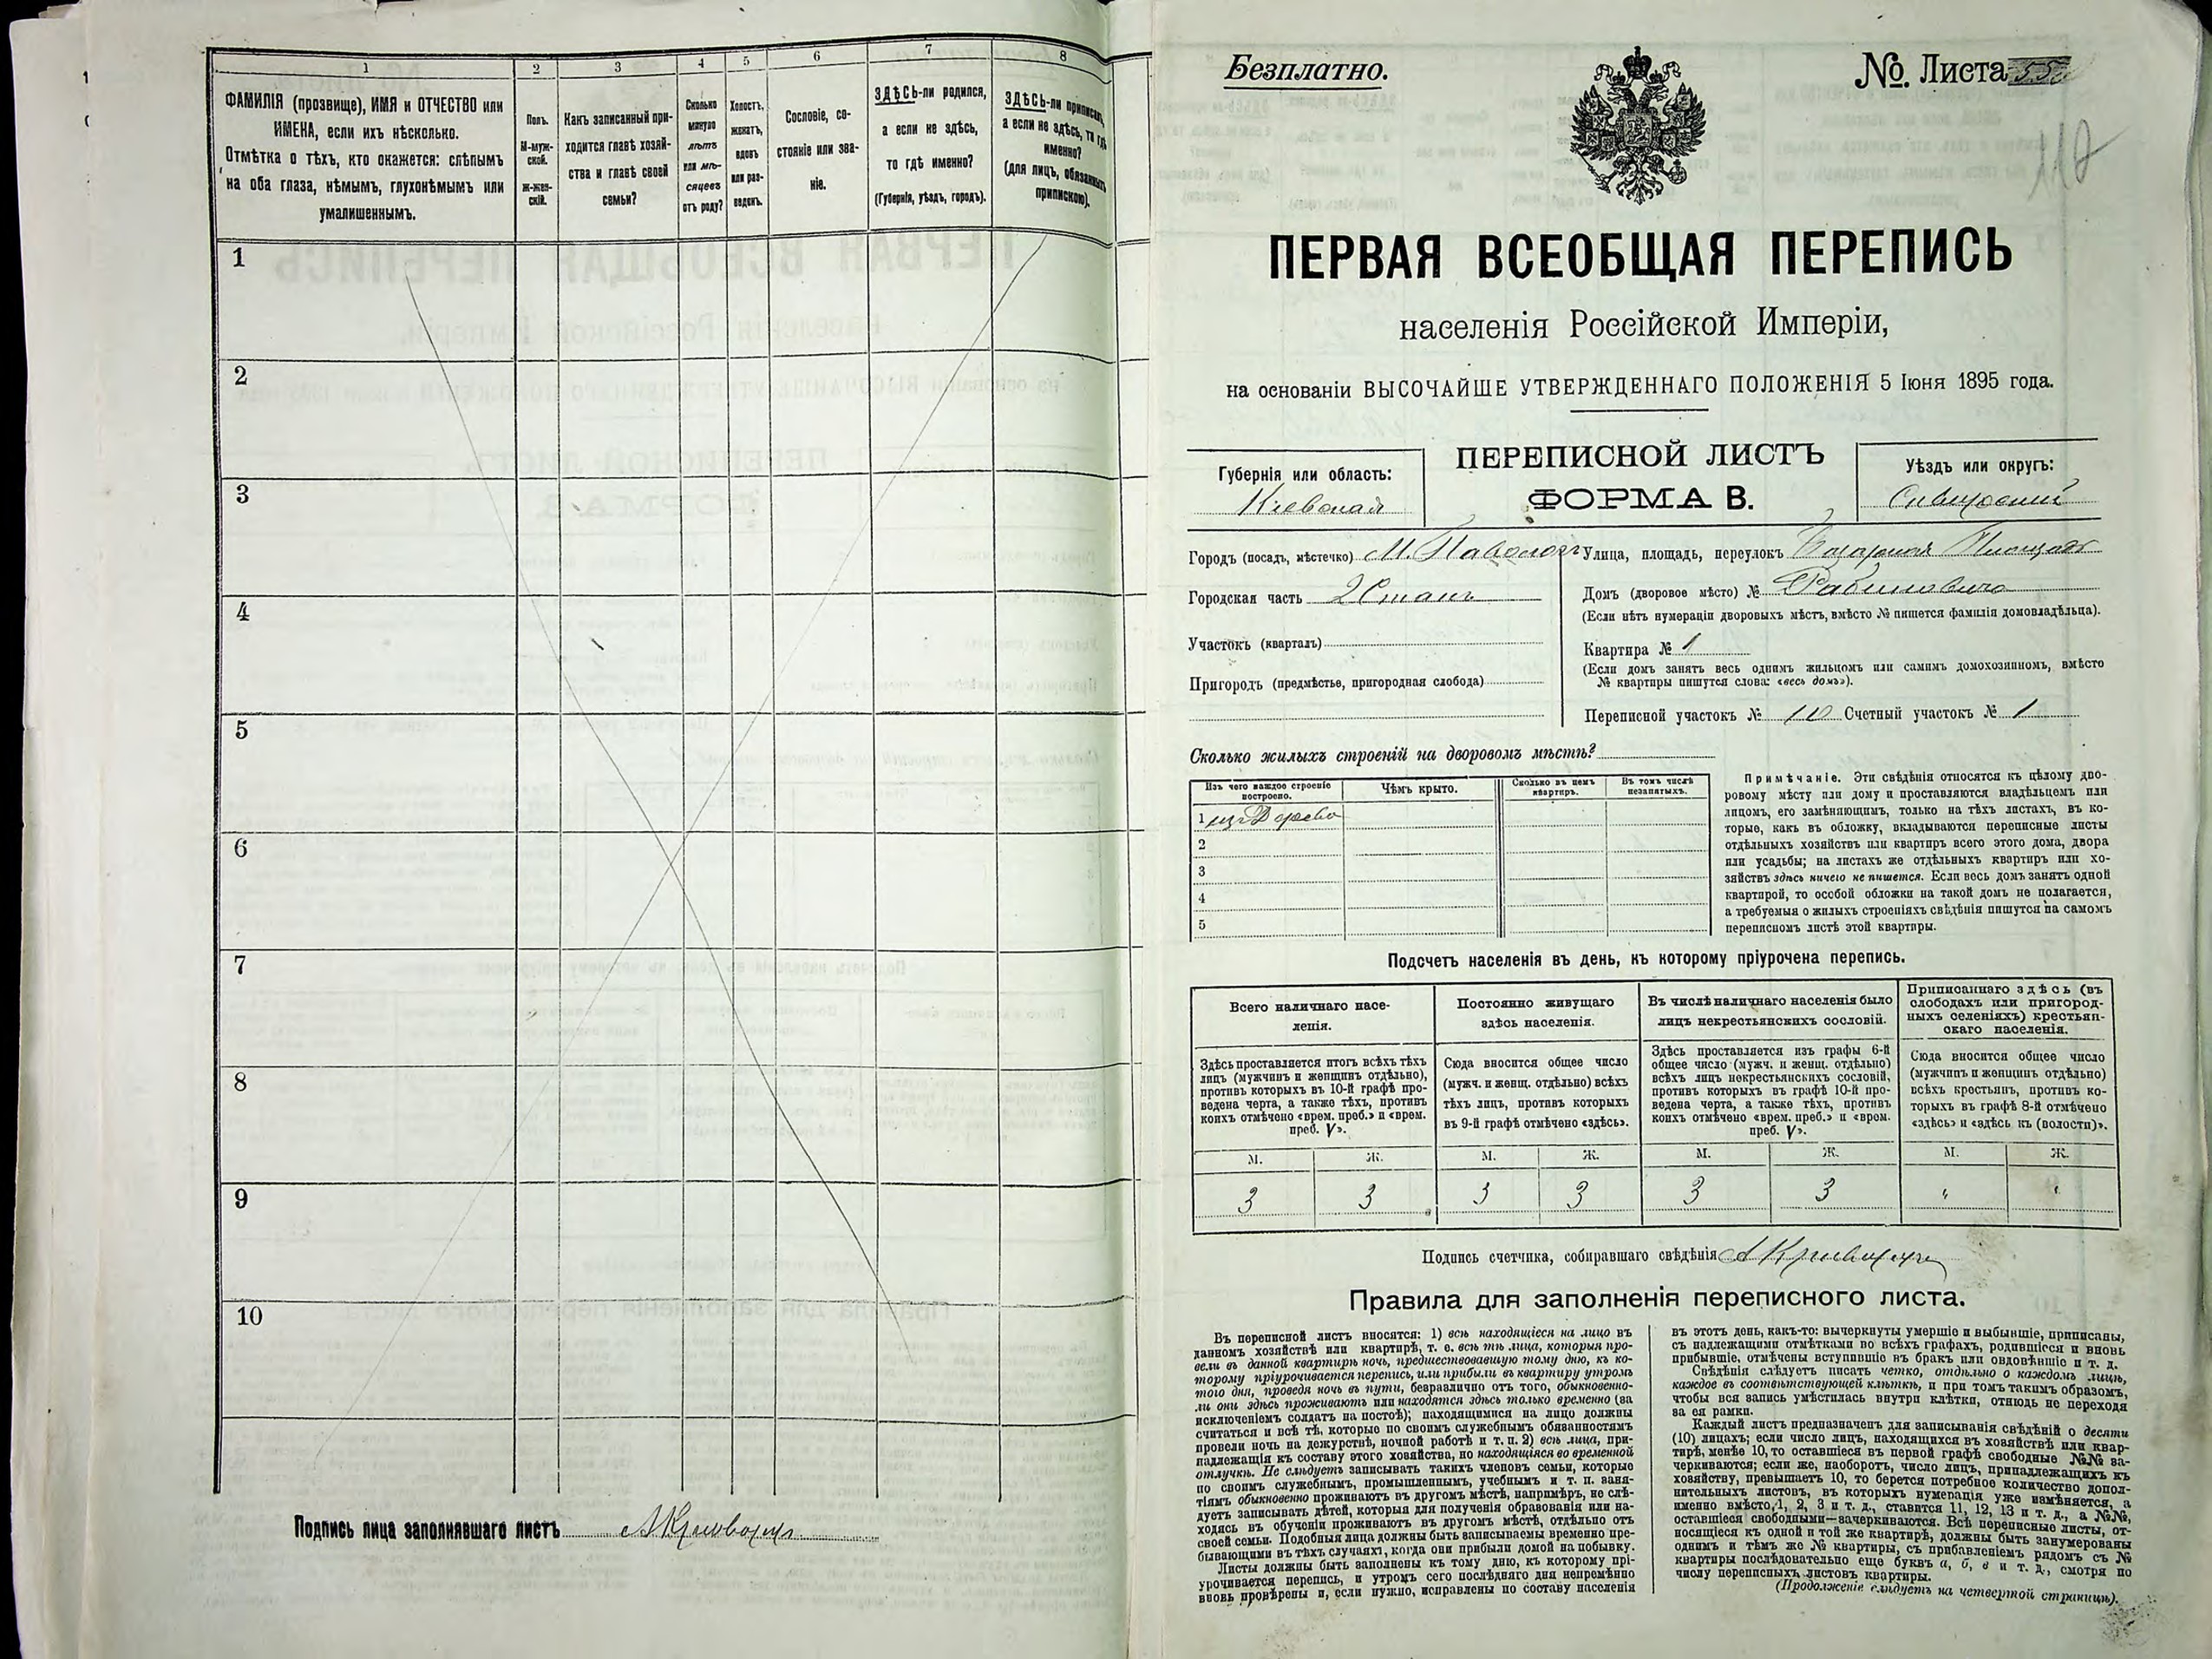 1 2 3 4 5 6 7 8
ФАМИЛІЯ (прозвище), ИМЯ и ОТЧЕСТВО или
ИМЕНА, если ихъ нѣсколько.
Отмѣтка о тѣхъ, кто окажется: слѣпымъ
на оба глаза, нѣмымъ, глухонѣмымъ или
умалишеннымъ.
Полъ.
М-муж-
ской.
ж-жен-
скій.
Какъ записанный при-
ходится главѣ хозяй-
ства и главѣ своей
семьи?
Сколько
минуло
лѣтъ
или мѣ-
сяцевъ
отъ роду?
Холостъ,
женатъ,
вдовъ
или раз-
веденъ.
Сословіе, со-
стояніе или зва-
ніе.
ЗДѢСЬ-ли родился,
а если не здѣсь,
то гдѣ именно?
(Губернія, уѣздъ, городъ).
ЗДѢСЬ-ли приписанъ,
а если не здѣсь, то гдѣ
именно?
(для лицъ, обязанныхъ
припискою).
1
2
3
4
5
6
7
8
9
10
Подпись лица заполнявшаго листъ
Безплатно.
№ Листа
ПЕРВАЯ ВСЕОБЩАЯ ПЕРЕПИСЬ
населенія Россійской Имперіи,
на основаніи ВЫСОЧАЙШЕ УТВЕРЖДЕННАГО ПОЛОЖЕНІЯ 5 Іюня 1895 года.
Губернія или область:
Кіевская
ПЕРЕПИСНОЙ ЛИСТЪ
ФОРМА В.
Уѣздъ или округъ:
Сквирскій
Городъ (посадъ, мѣстечко) М. Паволочь
Городская часть 2 Станъ
Участокъ (кварталъ)
Пригородъ (предмѣстье, пригородная слобода)
Улица, площадь, переулокъ Базарная Площадь
Домъ (дворовое мѣсто) № Рабиновича
(Если нѣтъ нумераціи дворовыхъ мѣстъ, вмѣсто № пишется фамилія домовладѣльца).
Квартира № 1
(Если домъ занятъ весь однимъ жильцомъ или самимъ домохозяиномъ, вмѣсто
№ квартиры пишутся слова: «весь домъ»).
Переписной участокъ № 10 Счетный участокъ № 1
Сколько жилыхъ строеній на дворовомъ мѣстѣ?
Изъ чего каждое строеніе
построено.
Чѣмъ крыто.
Сколько въ немъ
квартиръ.
Въ томъ числѣ
незанятыхъ.
1 изъ Дерева
2
3
4
5
Примѣчаніе. Эти свѣдѣнія относятся къ цѣлому дво-
ровому мѣсту или дому и проставляются владѣльцемъ или
лицомъ, его замѣняющимъ, только на тѣхъ листахъ, въ ко-
торые, какъ въ обложку, вкладываются переписные листы
отдѣльныхъ хозяйствъ или квартиръ всего этого дома, двора
или усадьбы; на листахъ же отдѣльныхъ квартиръ или хо-
зяйствъ здѣсь ничего не пишется. Если весь домъ занятъ одной
квартирой, то особой обложки на такой домъ не полагается,
а требуемыя о жилыхъ строеніяхъ свѣдѣнія пишутся на самомъ
переписномъ листѣ этой квартиры.
Подсчетъ населенія въ день, къ которому пріурочена перепись.
Всего наличнаго насе-
ленія.
Здѣсь проставляется итогъ всѣхъ тѣхъ
лицъ (мужчинъ и женщинъ отдѣльно),
противъ которыхъ въ 10-й графѣ про-
ведена черта, а также тѣхъ, противъ
коихъ отмѣчено «врем. преб.» и «врем.
преб. V».
Постоянно живущаго
здѣсь населенія.
Сюда вносится общее число
(мужч. и женщ. отдѣльно) всѣхъ
тѣхъ лицъ, противъ которыхъ
въ 9-й графѣ отмѣчено «здѣсь».
Въ числѣ наличнаго населенія было
лицъ некрестьянскихъ сословій.
Здѣсь проставляется изъ графы 6-й
общее число (мужч. и женщ. отдѣльно)
всѣхъ лицъ некрестьянскихъ сословій,
противъ которыхъ въ графѣ 10-й про-
ведена черта, а также тѣхъ, противъ
коихъ отмѣчено «врем. преб.» и «врем.
преб. V».
Приписаннаго здѣсь (въ
слободахъ или пригород-
ныхъ селеніяхъ) крестьян-
скаго населенія.
Сюда вносится общее число
(мужчинъ и женщинъ отдѣльно)
всѣхъ крестьянъ, противъ ко-
торыхъ въ графѣ 8-й отмѣчено
«здѣсь» и «здѣсь къ (волости)».
М. Ж. М. Ж. М. Ж. М. Ж.
3 3 3 3 3 3 " "
Подпись счетчика, собиравшаго свѣдѣнія
Правила для заполненія переписного листа.
Въ переписной листъ вносятся: 1) всѣ находящіеся на лицо въ
данномъ хозяйствѣ или квартирѣ, т. е. всѣ тѣ лица, которыя про-
вели въ данной квартирѣ ночь, предшествовавшую тому дню, къ ко-
торому пріурочивается перепись, или прибыли въ квартиру утромъ
того дня, проведя ночь въ пути, безразлично отъ того, обыкновенно-
ли они здѣсь проживаютъ или находятся здѣсь только временно (за
исключеніемъ солдатъ на постоѣ); находящимися на лицо должны
считаться и всѣ тѣ, которые по своимъ служебнымъ обязанностямъ
провели ночь на дежурствѣ, ночной работѣ и т. п. 2) всѣ лица, при-
надлежащія къ составу этого хозяйства, но находящіяся во временной
отлучкѣ. Не слѣдуетъ записывать такихъ членовъ семьи, которые
по своимъ служебнымъ, промышленнымъ, учебнымъ и т. п. заня-
тіямъ обыкновенно проживаютъ въ другомъ мѣстѣ, напримѣръ, не слѣ-
дуетъ записывать дѣтей, которыя для полученія образованія или на-
ходясь въ обученіи проживаютъ въ другомъ мѣстѣ, отдѣльно отъ
своей семьи. Подобныя лица должны быть записываемы временно пре-
бывающими въ тѣхъ случаяхъ, когда они прибыли домой на побывку.
Листы должны быть заполнены къ тому дню, къ которому прі-
урочивается перепись, и утромъ сего послѣдняго дня непремѣнно
вновь провѣрены и, если нужно, исправлены по составу населенія
въ этотъ день, какъ-то: вычеркнуты умершіе и выбывшіе, приписаны,
съ надлежащими отмѣтками во всѣхъ графахъ, родившіеся и вновь
прибывшіе, отмѣчены вступившіе въ бракъ или овдовѣвшіе и т. д.
Свѣдѣнія слѣдуетъ писать четко, отдѣльно о каждомъ лицѣ,
каждое въ соотвѣтствующей клѣткѣ, и при томъ такимъ образомъ,
чтобы вся запись умѣстилась внутри клѣтки, отнюдь не переходя
за ея рамки.
Каждый листъ предназначенъ для записыванія свѣдѣній о десяти
(10) лицахъ; если число лицъ, находящихся въ хозяйствѣ или квар-
тирѣ, менѣе 10, то оставшіеся въ первой графѣ свободные №№ за-
черкиваются; если же, наоборотъ, число лицъ, принадлежащихъ къ
хозяйству, превышаетъ 10, то берется потребное количество допол-
нительныхъ листовъ, въ которыхъ нумерація уже измѣняется, а
именно вмѣсто, 1, 2, 3 и т. д., ставится 11, 12, 13 и т. д., а №№,
оставшіеся свободными—зачеркиваются. Всѣ переписные листы, от-
носящіеся къ одной и той же квартирѣ, должны быть занумерованы
однимъ и тѣмъ же № квартиры, съ прибавленіемъ рядомъ съ №
квартиры послѣдовательно еще буквъ а, б, в и т. д., смотря по
числу переписныхъ листовъ квартиры.
(Продолженіе слѣдуетъ на четвертой страницѣ).